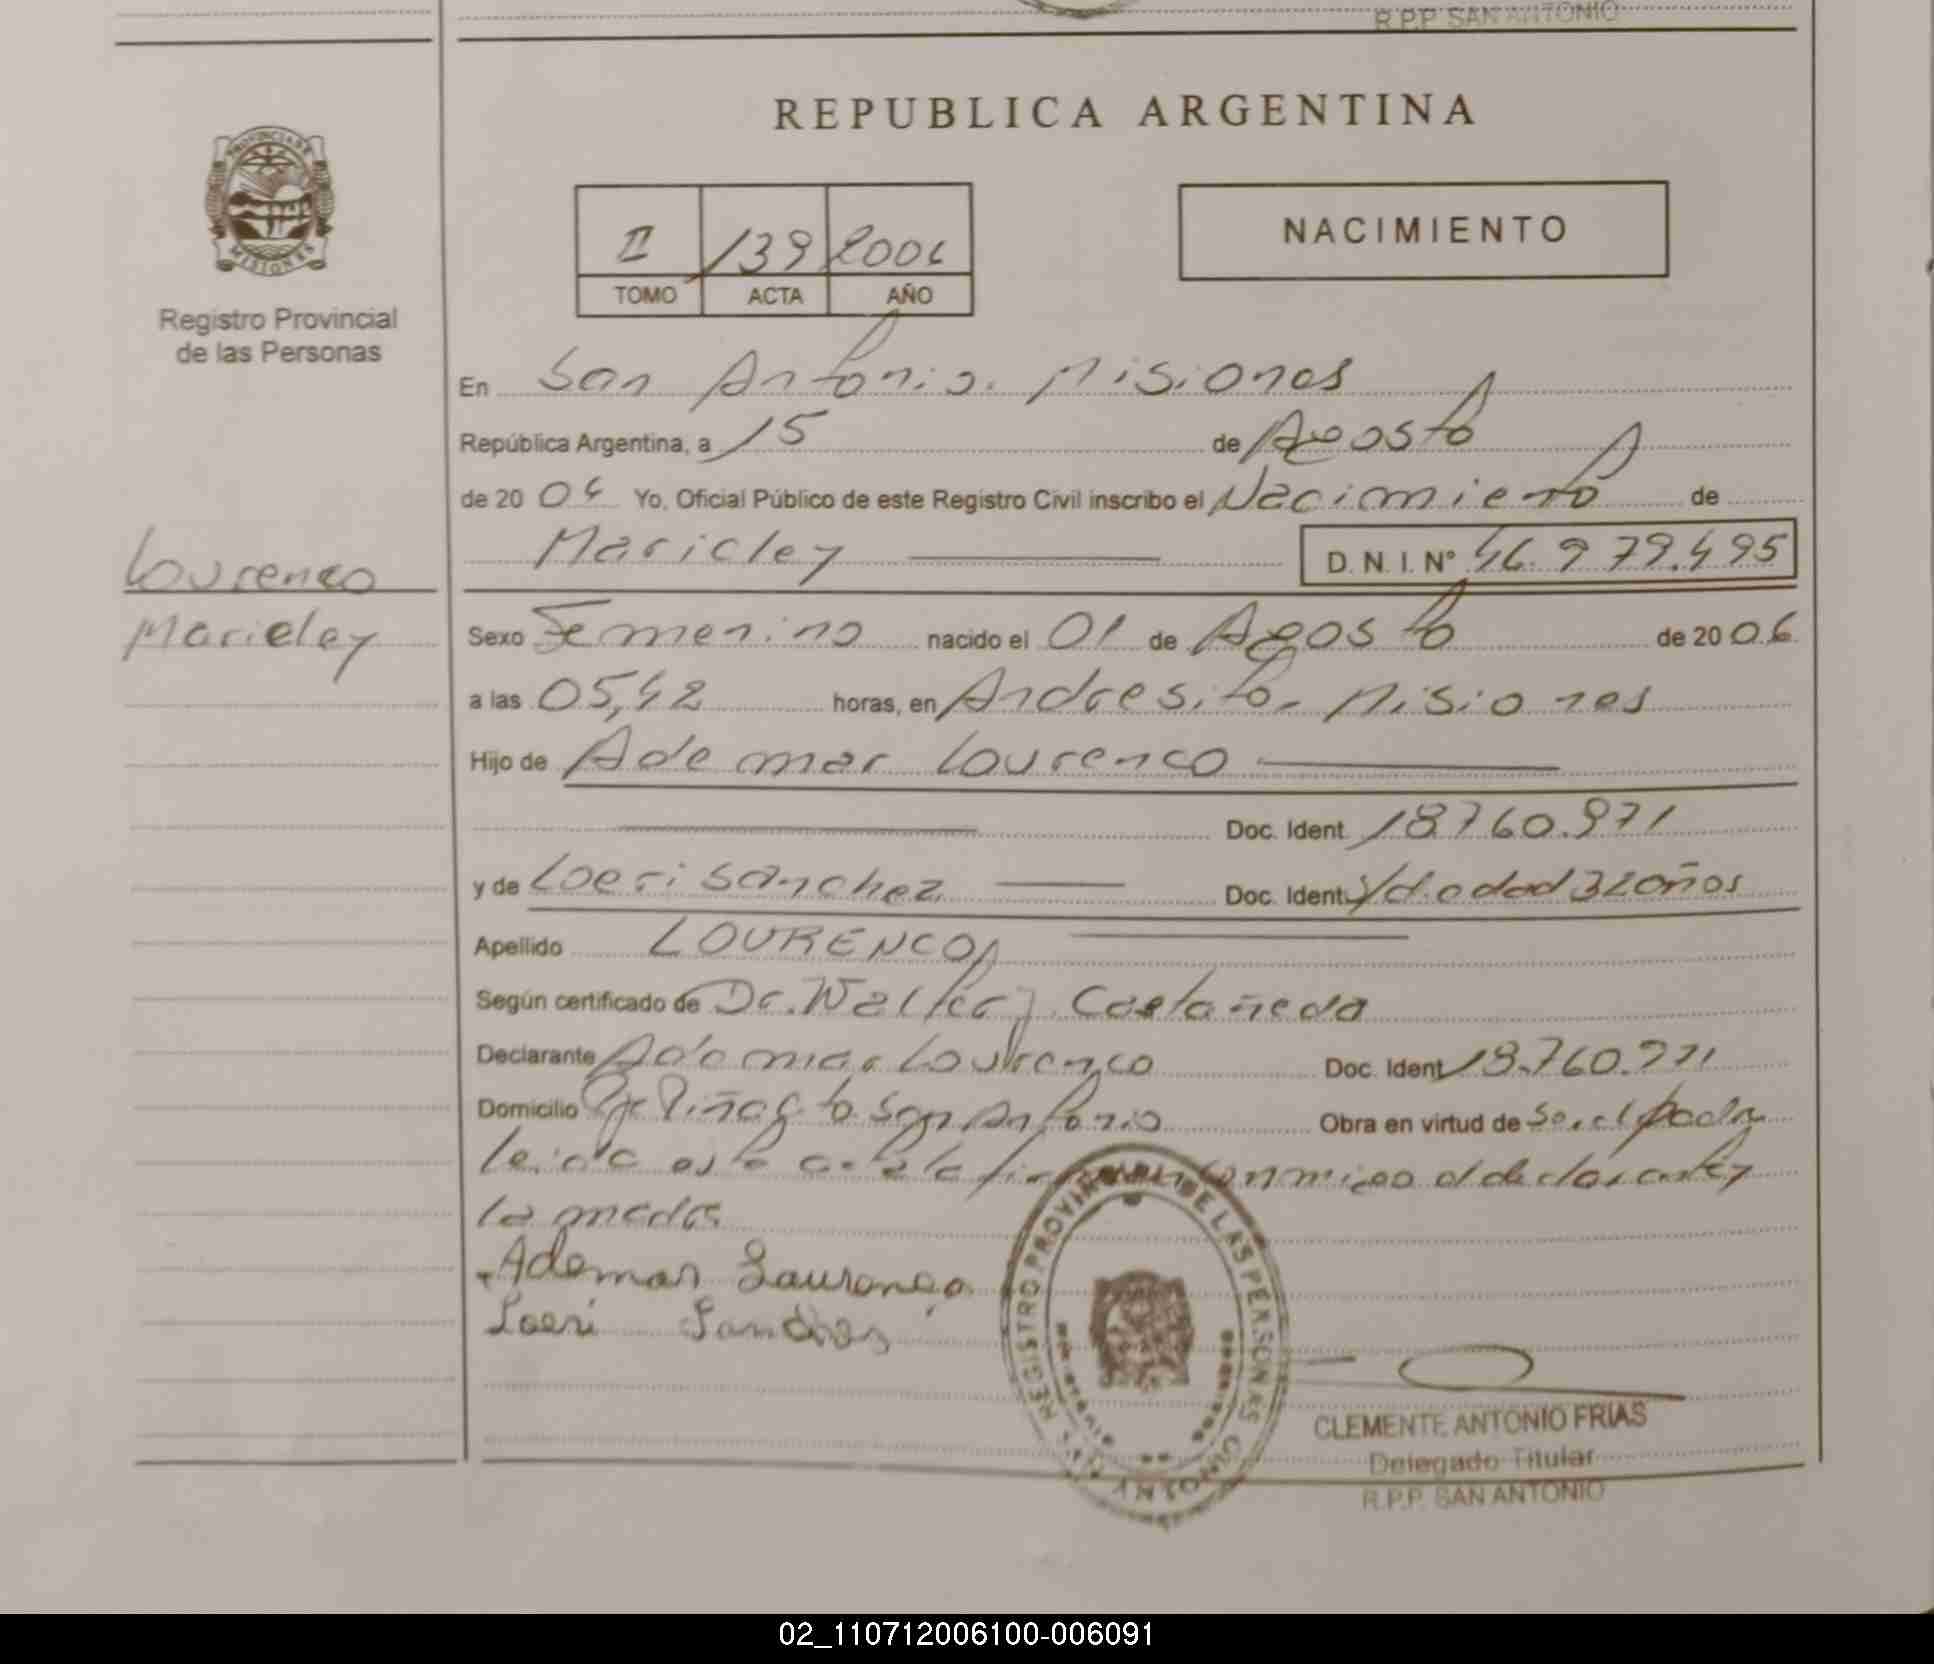 R.P.P. SAN ANTONIO
REPUBLICA ARGENTINA
PROVINCIA DE
MISIONES
Registro Provincial
de las Personas
II 139 2006
TOMO ACTA AÑO
NACIMIENTO
En San Antonio. Misiones
República Argentina, a 15 de Agosto
de 20 06 Yo, Oficial Público de este Registro Civil inscribo el Nacimiento de
Maricley D. N. I. Nº 46.979.495
Lourenco
Maricley
Sexo Femenino nacido el 01 de Agosto de 20 06
a las 05,42 horas, en Andresito - Misiones
Hijo de Ademar Lourenco
Doc. Ident. 18.760.971
y de Loeri Sanchez Doc. Ident. d.edad 32 años
Apellido LOURENCO
Según certificado de Dr. Walter J. Castañeda
Declarante Ademar Lourenco Doc. Ident 18.760.971
Domicilio Pje Piñalito San Antonio Obra en virtud de Ser el padre
Leida esta acta la firman conmigo el declarante y
la madre
Ademar Lourenço
Loeri Sanches
REGISTRO PROVINCIAL DE LAS PERSONAS
CLEMENTE ANTONIO FRIAS
Delegado Titular
R.P.P. SAN ANTONIO
02_110712006100-006091